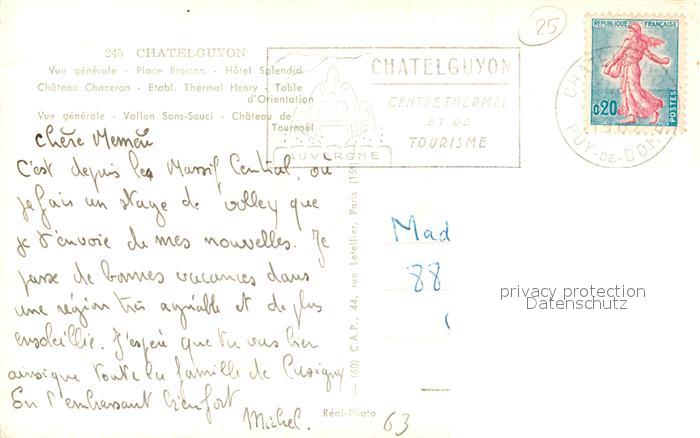 25
245 CHATELGUYON
Vue générale - Place Brosson - Hôtel Splendid
Château Chazeron - Etabl. Thermal Henry - Table
d'Orientation
Vue générale - Vallon Sans-Souci - Château de
Tournoël
CHATELGUYON
CENTRE THERMAL
ET DE
TOURISME
AUVERGNE
REPUBLIQUE FRANÇAISE
0,20
POSTES
PUY-DE-DOME
Chère Memeu
C'est depuis le Massif Central, où
je fais un stage de volley que
je t'envoie de mes nouvelles. Je
passe de bonnes vacances dans
une région très agréable et de plus
ensoleillie. J'espère que tu vas bien
ainsi que toute la famille de Cusigny
En t'embrassant bien fort
Michel.
(60) C.A.P., 44, rue Letellier, Paris (15e)
Réal-Photo
63
Mad
88
privacy protection
Datenschutz